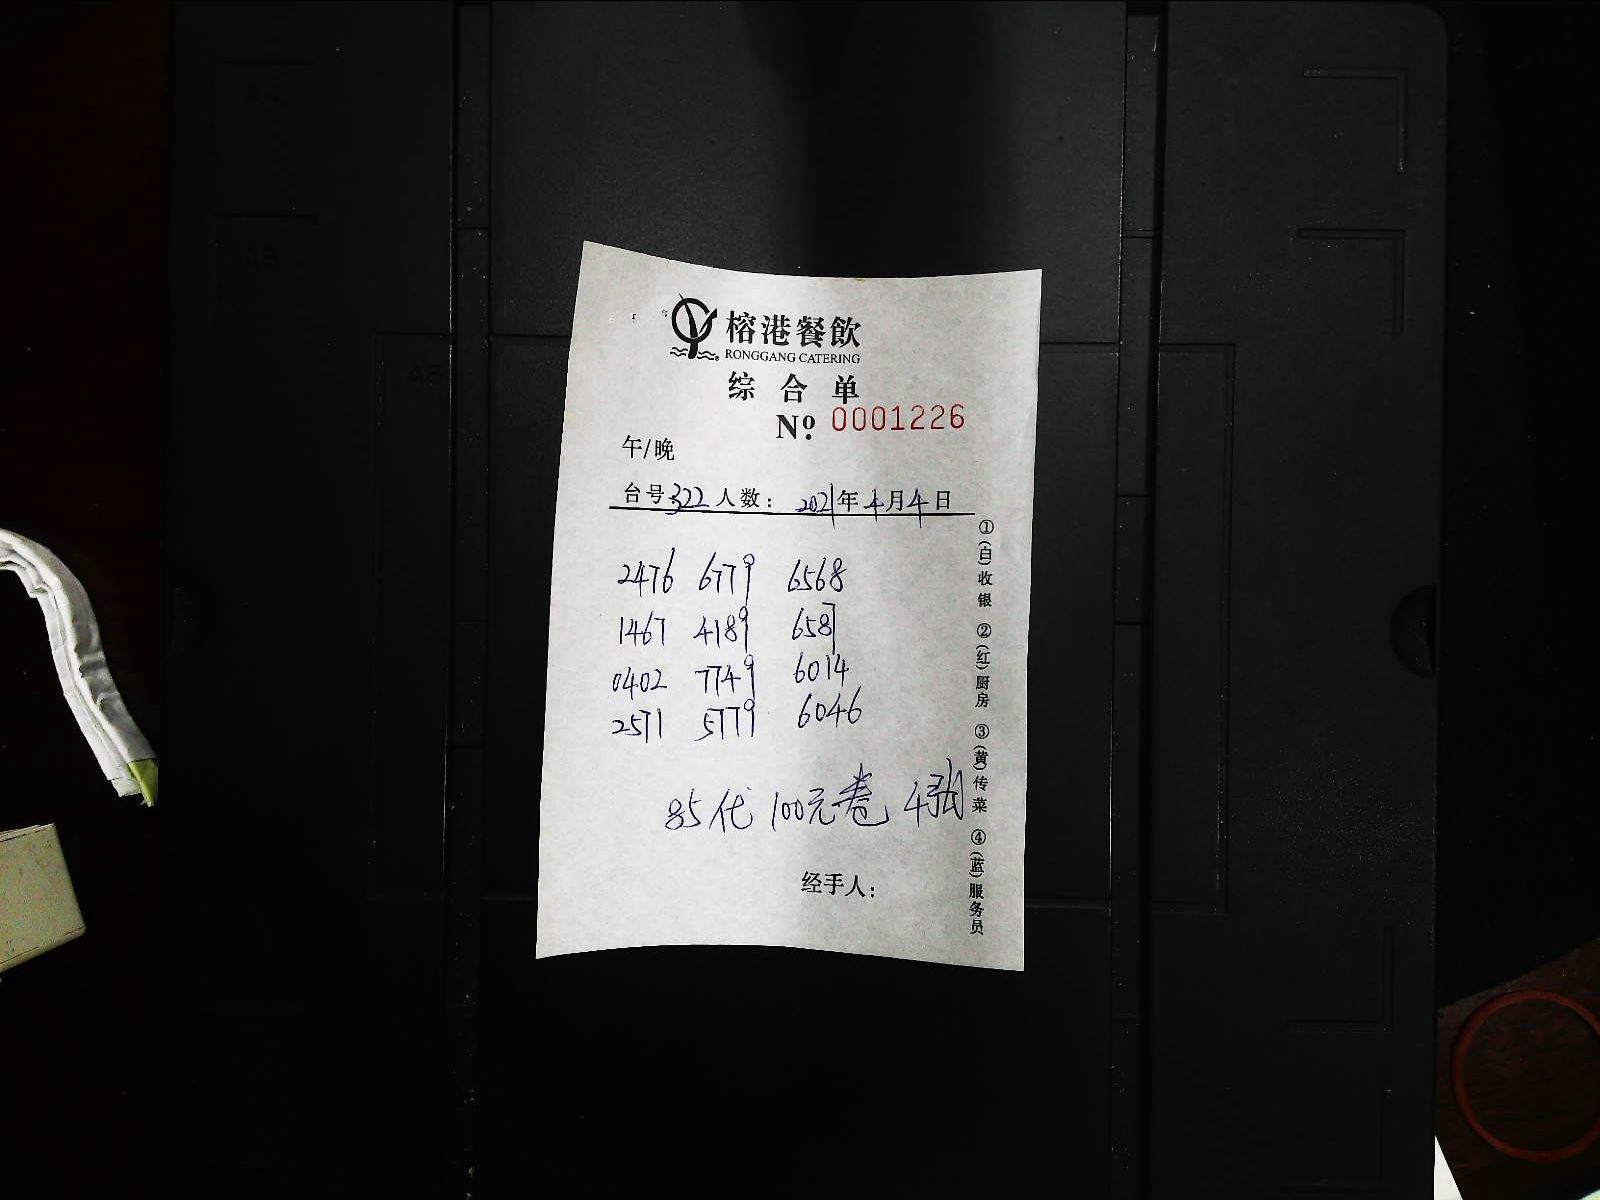 榕港餐飲
RONGGANG CATERING
综合单
Nº: 0001226
午/晚
台号322人数: 2021年4月4日
2476 6779 6568
1467 4189 6587
0402 7749 6014
2571 5779 6046
85代 100元卷 4张
经手人:
①(白)收银 ②(红)厨房 ③(黄)传菜 ④(蓝)服务员